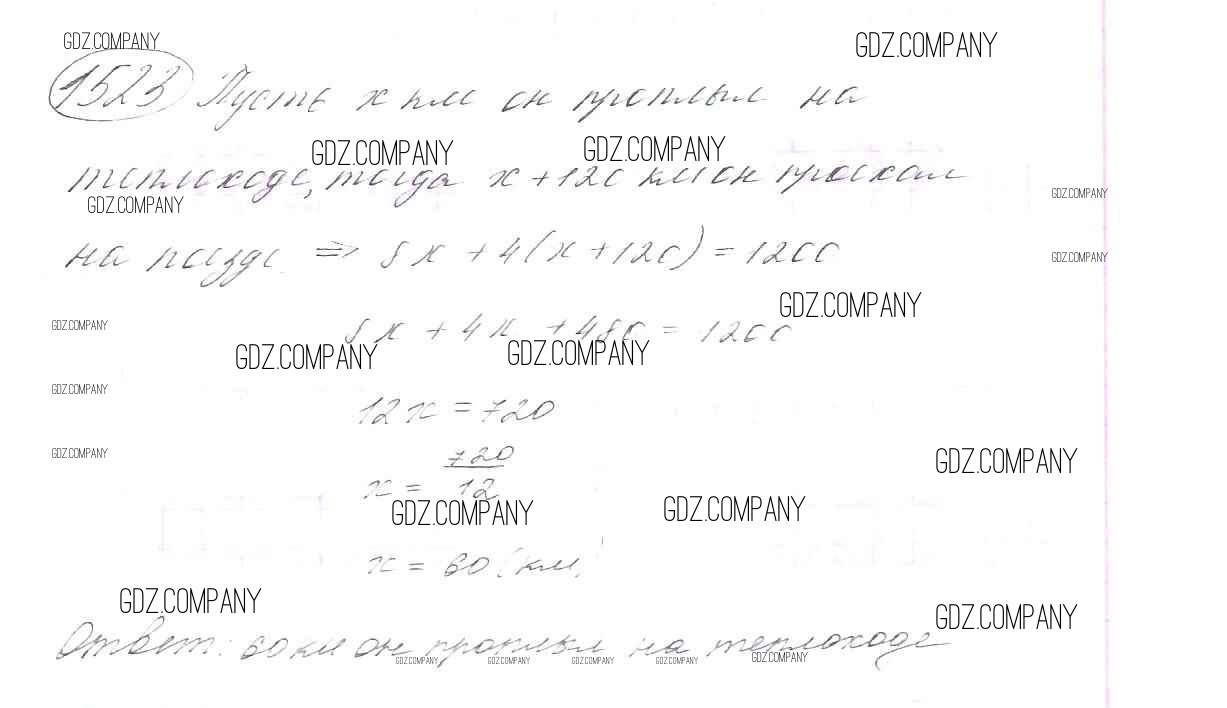 GDZ.COMPANY GDZ.COMPANY
1523 Пусть x км он проплыл на
GDZ.COMPANY GDZ.COMPANY
теплоходе, тогда x + 120 км он проехал
GDZ.COMPANY GDZ.COMPANY
на поезде ⇒ 8x + 4(x + 120) = 1200
GDZ.COMPANY
GDZ.COMPANY
8x + 4x + 480 = 1200
GDZ.COMPANY
GDZ.COMPANY GDZ.COMPANY
GDZ.COMPANY
12x = 720
GDZ.COMPANY GDZ.COMPANY
x = 720/12
GDZ.COMPANY GDZ.COMPANY
x = 60 (км)
GDZ.COMPANY GDZ.COMPANY
Ответ: 60 км он проплыл на теплоходе
GDZ.COMPANY GDZ.COMPANY GDZ.COMPANY GDZ.COMPANY GDZ.COMPANY